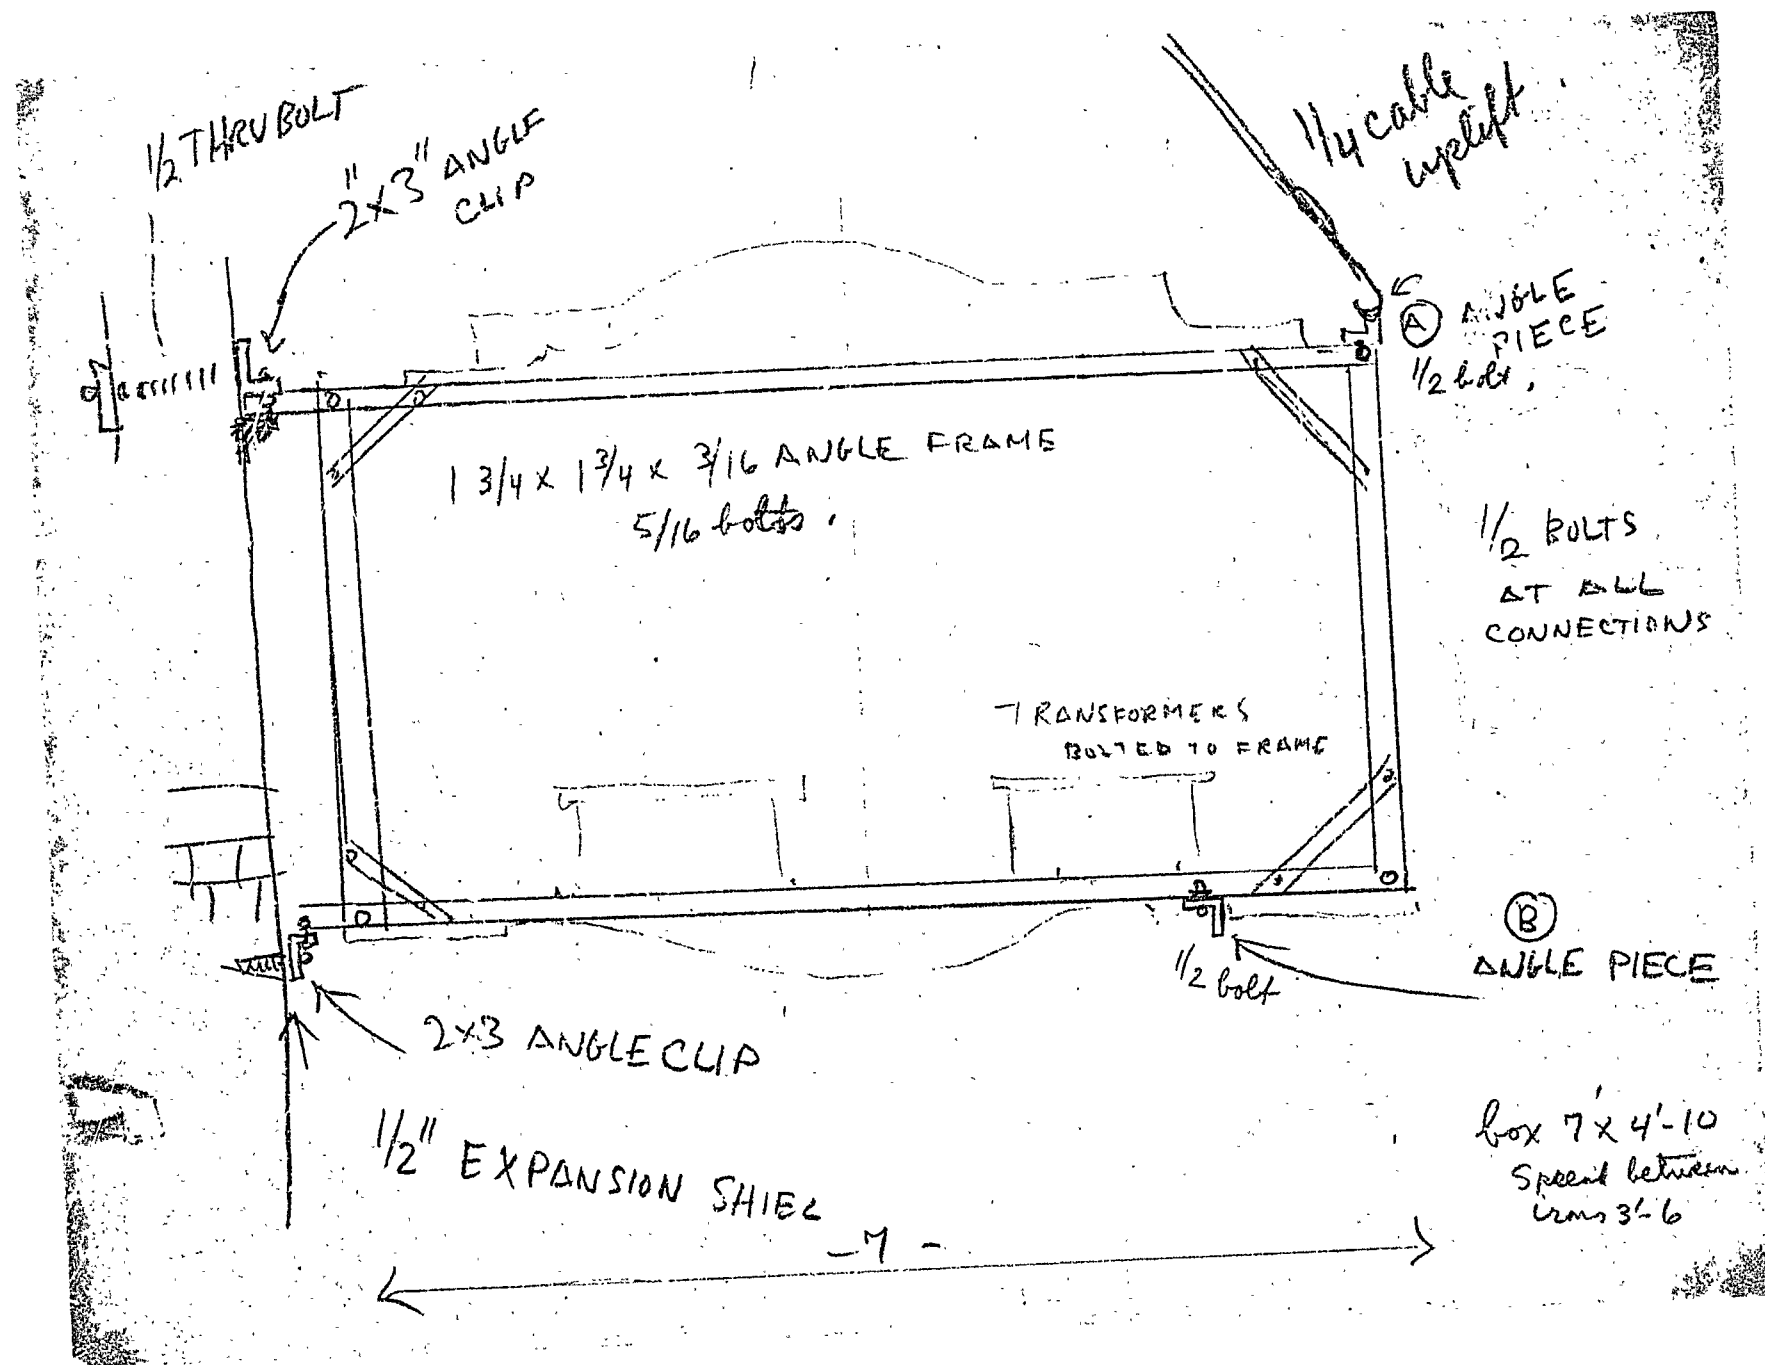 1/2 THRU BOLT
2" x 3" ANGLE
CLIP
1/4 cable
uplift
A ANGLE
PIECE
1/2 bolt.
1 3/4 x 1 3/4 x 3/16 ANGLE FRAME
5/16 bolts.
1/2 BOLTS
AT ALL
CONNECTIONS
TRANSFORMERS
BOLTED TO FRAME
B
ANGLE PIECE
1/2 bolt
2x3 ANGLE CLIP
1/2" EXPANSION SHIEL
box 7' x 4'-10
between
irons 3'-6
- 7 -